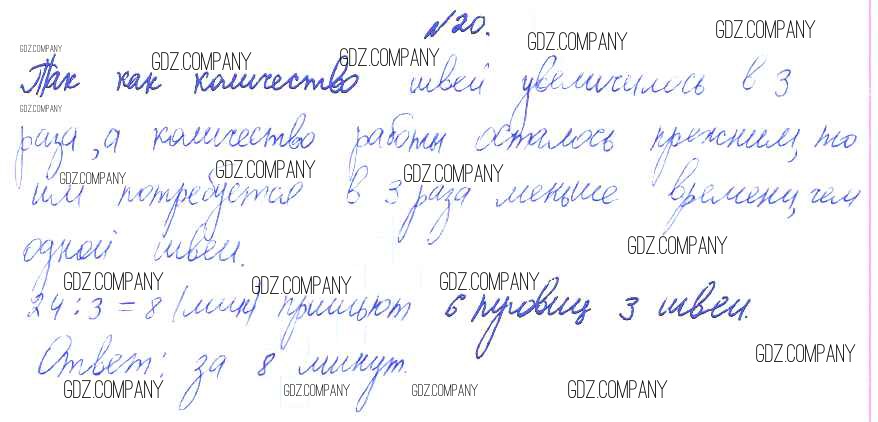 №20.
GDZ.COMPANY GDZ.COMPANY GDZ.COMPANY GDZ.COMPANY GDZ.COMPANY
Так как количество швей увеличилось в 3
GDZ.COMPANY
раза, а количество работы осталось прежним, то
GDZ.COMPANY GDZ.COMPANY GDZ.COMPANY
им потребуется в 3 раза меньше времени, чем
одной швеи.
GDZ.COMPANY
GDZ.COMPANY GDZ.COMPANY GDZ.COMPANY
24:3=8 (мин) пришьют 6 пуговиц 3 швеи.
GDZ.COMPANY
Ответ: за 8 минут.
GDZ.COMPANY GDZ.COMPANY GDZ.COMPANY GDZ.COMPANY